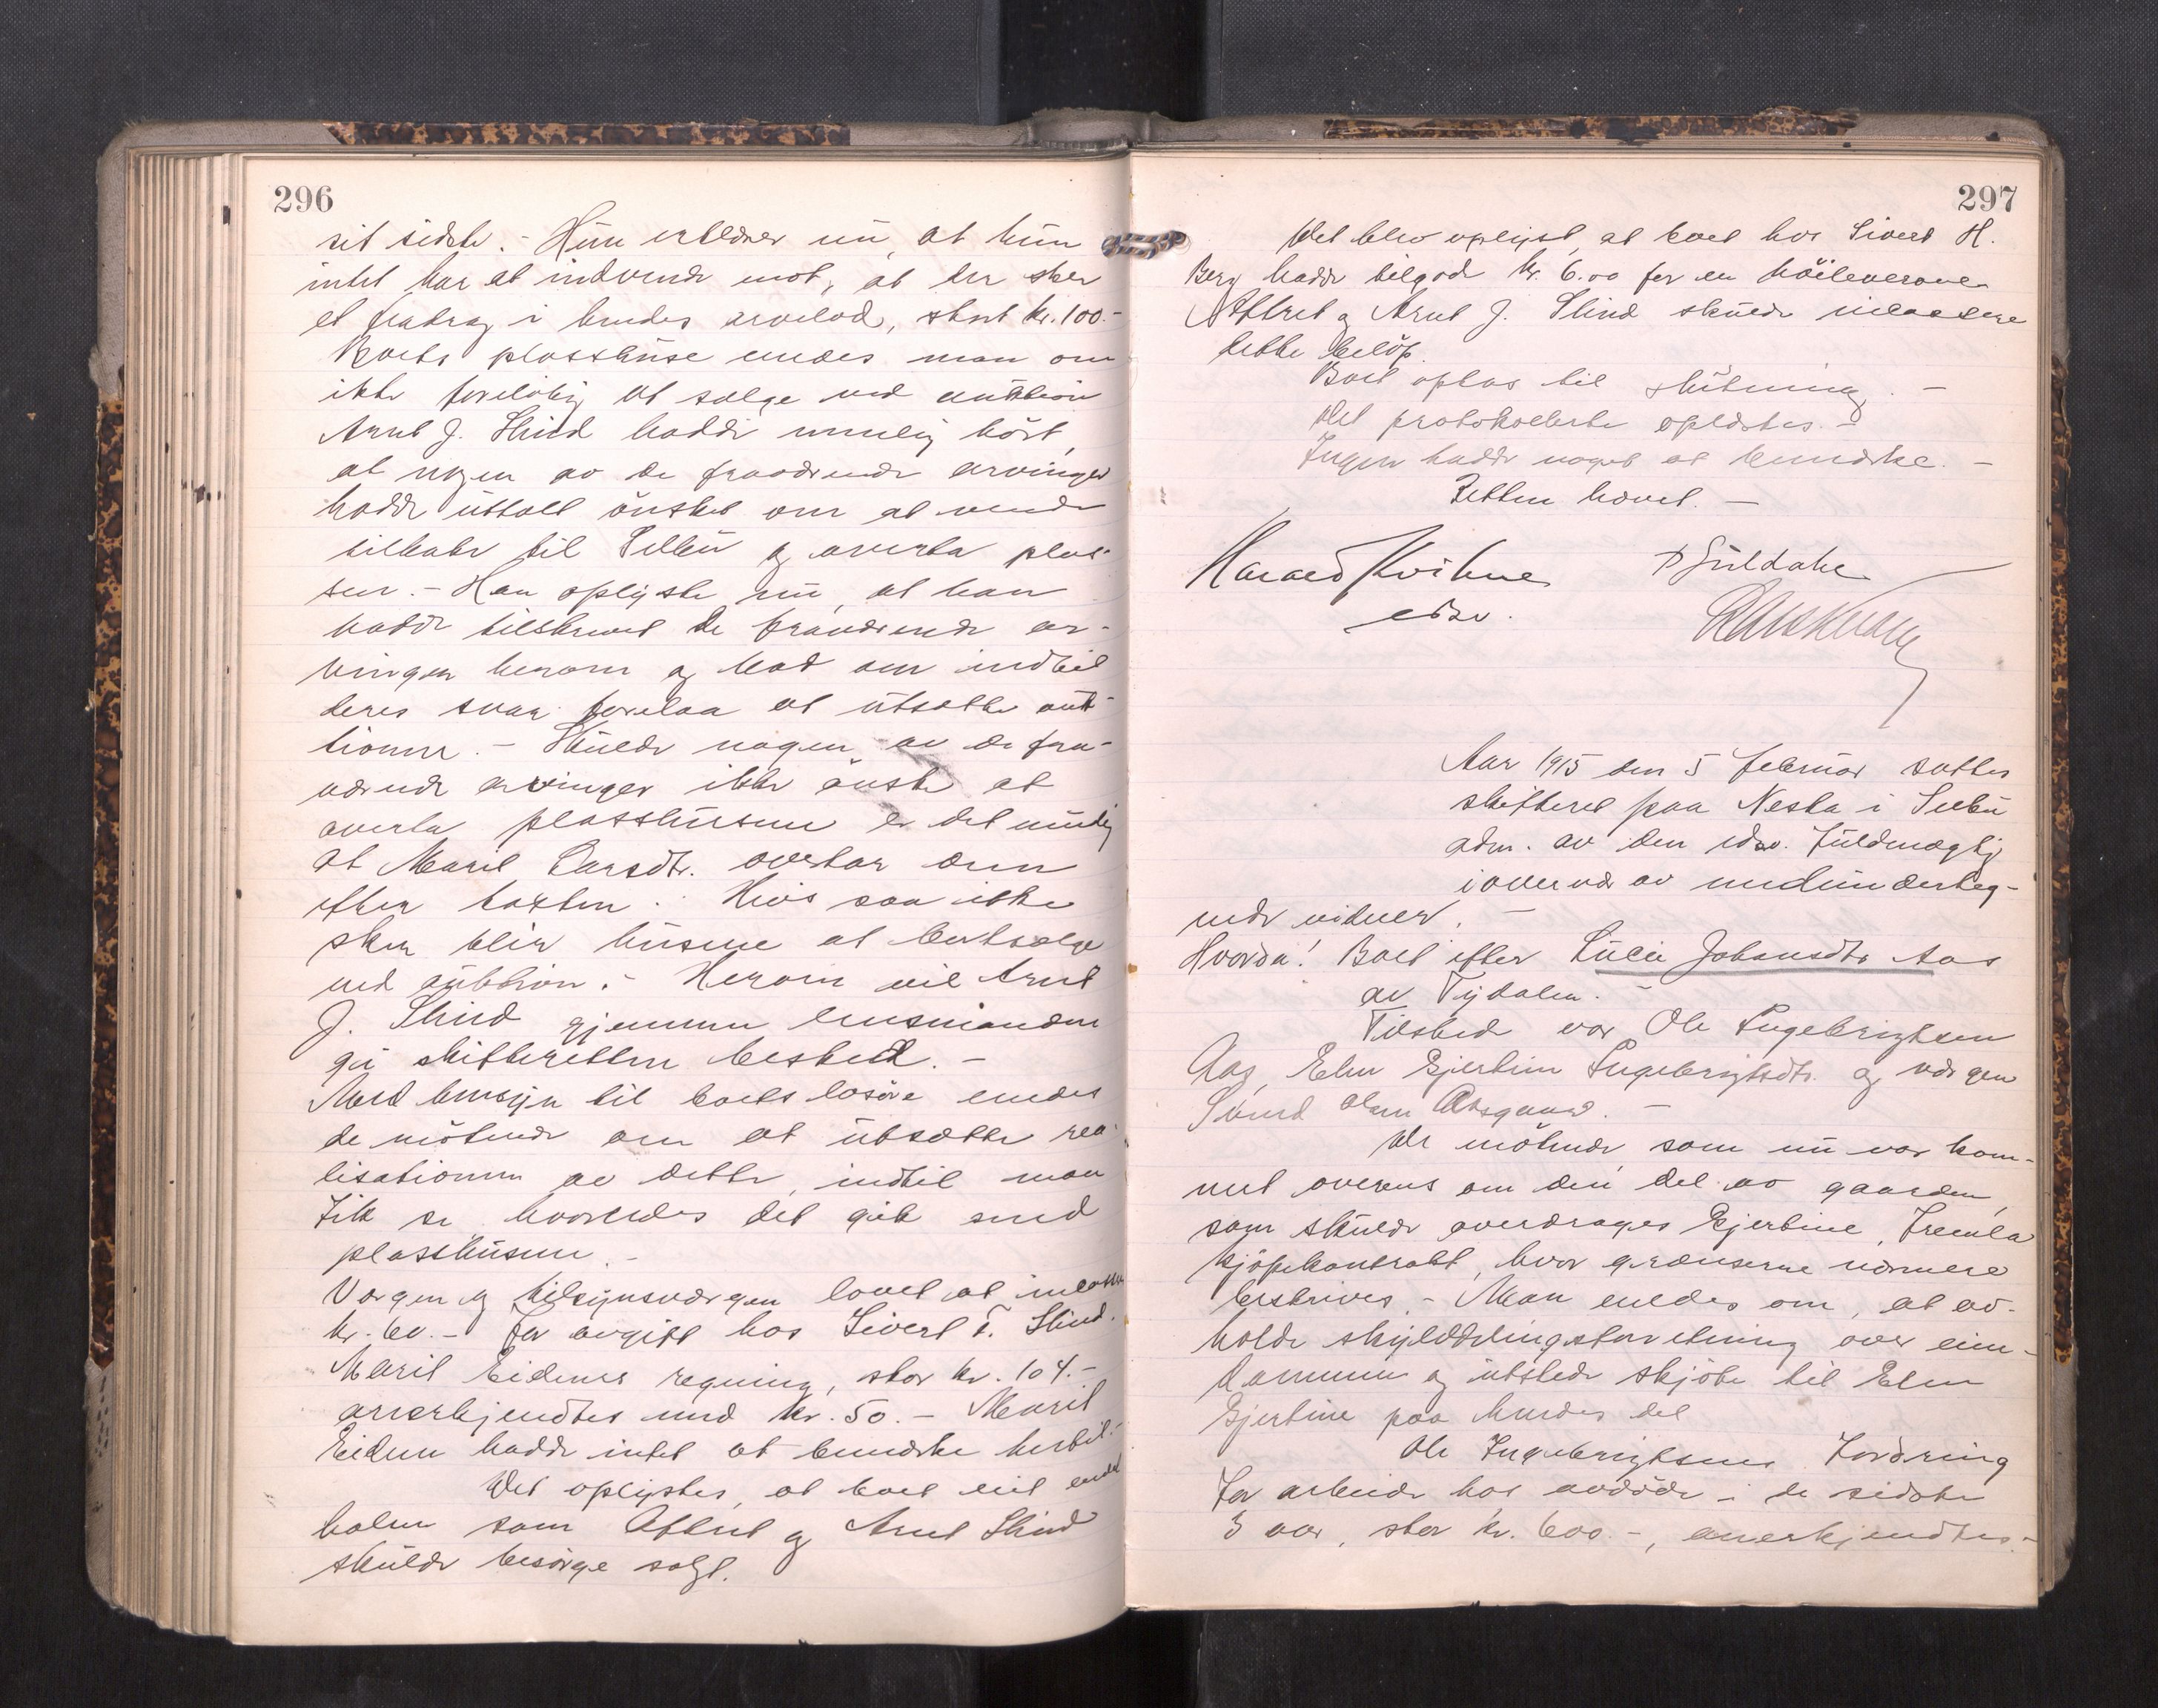 296
sit sidste. - Hun erklærer nu, at hun
intet har at indvende mot, at der sker
et fradrag i hendes arvelod, stort kr. 100.-
Boets plasshuse enedes man om
ikke foreløbig at sælge ved auktion
Arnt J. Slind hadde nemlig hørt,
at nogen av de fraværende arvinger
hadde uttalt ønsket om at vende
tilbake til Selbu og overta plas-
sen. - Han oplyste nu, at han
hadde tilskrevet de fraværende ar-
vinger herom og bad om indtil
deres svar forelaa at utsætte auk-
tionen. - Skulde nogen av de fra-
værende arvinger ikke ønske at
overta plasshusene er det mulig
at Marit Larsdtr. overtar dem
efter taxten. Hvis saa ikke
sker blir husene at bortsælge
ved auktion. - Herom vil Arnt
J. Slind gjennem lensmanden
gi skifteretten besked. -
Med hensyn til boets løsøre enedes
de møtende om at utsætte rea-
lisationen av dette, indtil man
fik se hvorledes det gik med
plasshusene. -
Værgen og tilsynsværgen lovet at inkassere
kr. 60.- for avgift hos Sivert T. Slind.
Marit Eidems regning, stor kr. 104.-
anerkjendtes med kr. 50.- Marit
Eidem hadde intet at bemerke hertil.-
Det oplystes, at boet eiet endel
halm som Attret og Arnt Slind
skulde besørge solgt.
297
Det blev oplyst, at boet hos Sivert H.
Berg hadde tilgod kr. 6.00 for en høileverance
Attret og Arnt J. Slind skulde inkassere
dette beløp.
Boet optas til slutning. -
Det protokollerte oplæstes. -
Ingen hadde noget at bemerke. -
Retten hævet. -
Harald Kvikne
edsv.
Aar 1915 den 5 februar sattes
skifteret paa Nesta i Selbu
adm. av den edsv. fuldmægtig
i overvær av medunderteg-
nede vidner. -
Hvorda! Boet efter Lucie Johansdtr Aas
av Tydalen. -
Tilstede var Ole Ingebrigtsen
Aas, Elen Gjertine Ingebrigtsdtr. og værgen
Svend Olsen Aasgaard. -
De møtende som nu var kom-
met overens om den del av gaarden,
som skulde overdrages Gjertine, fremla
kjøpekontrakt, hvor grænserne nærmere
beskrives. - Man enedes om, at av-
holde skylddelingsforretning over eien-
dommen og utstede skjøte til Elen
Gjertine paa hendes del
Ole Ingebrigtsens fordring
for arbeide hos avdøde i de sidste
3 aar, stor kr. 600.-, anerkjendtes.-